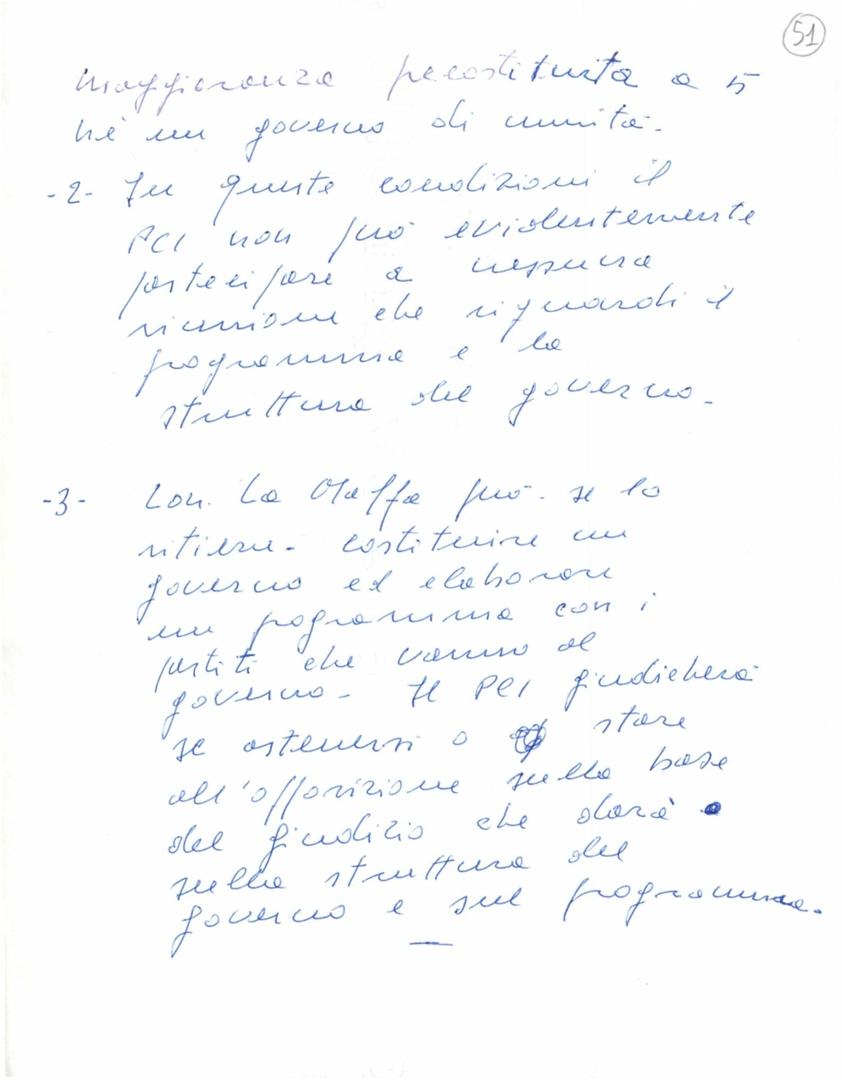 51
maggioranza precostituita a 5
nè un governo di unità.
-2- In queste condizioni il
PCI non può evidentemente
partecipare a nessuna
riunione che riguardi il
programma e la
struttura del governo.
-3- L'on. La Malfa può - se lo
ritiene - costituire un
governo ed elaborare
un programma con i
partiti che vanno al
governo. Il PCI giudicherà
se astenersi o stare
all'opposizione sulla base
del giudizio che darà
sulla struttura del
governo e sul programma.